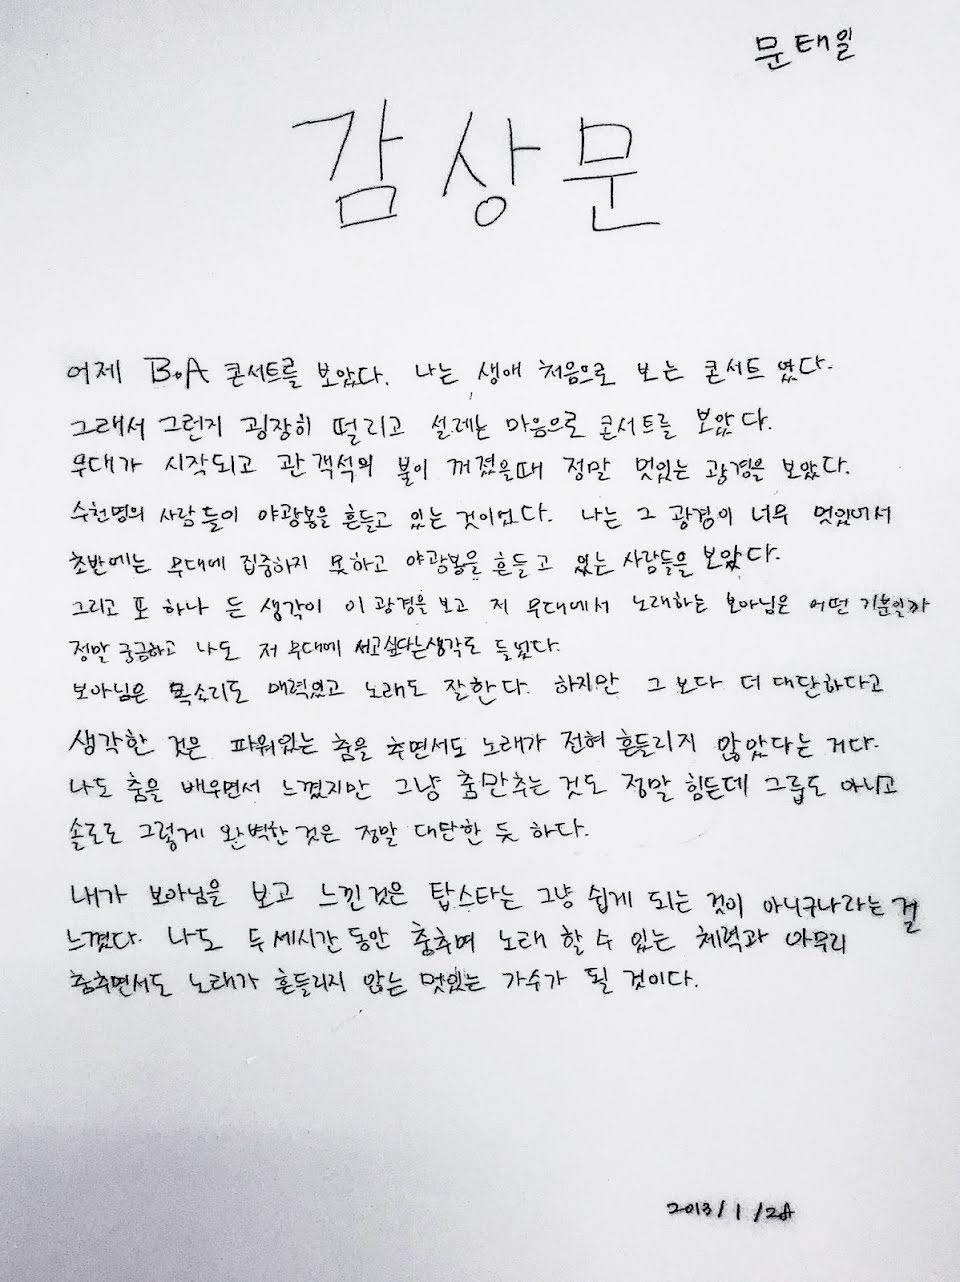 문태일
감상문
어제 B.A 콘서트를 보았다. 나는 생애 처음으로 보는 콘서트 였다.
그래서 그런지 굉장히 떨리고 설레는 마음으로 콘서트를 보았다.
무대가 시작되고 관객석의 불이 꺼졌을때 정말 멋있는 광경을 보았다.
수천명의 사람들이 야광봉을 흔들고 있는 것이었다. 나는 그 광경이 너무 멋있어서
초반에는 무대에 집중하지 못하고 야광봉을 흔들고 있는 사람들을 보았다.
그리고 또 하나 든 생각이 이 광경을 보고 저 무대에서 노래하는 보아님은 어떤 기분일까
정말 궁금하고 나도 저 무대에 서고싶다는생각도 들었다.
보아님은 목소리도 매력있고 노래도 잘한다. 하지만 그 보다 더 대단하다고
생각한 것은 파워있는 춤을 추면서도 노래가 전혀 흔들리지 않았다는 거다.
나도 춤을 배우면서 느꼈지만 그냥 춤만추는 것도 정말 힘든데 그룹도 아니고
솔로로 그렇게 완벽한 것은 정말 대단한 듯 하다.
내가 보아님을 보고 느낀것은 탑스타는 그냥 쉽게 되는 것이 아니구나라는 걸
느꼈다. 나도 두세시간 동안 춤추며 노래 할 수 있는 체력과 아무리
춤추면서도 노래가 흔들리지 않는 멋있는 가수가 될 것이다.
2013/1/28